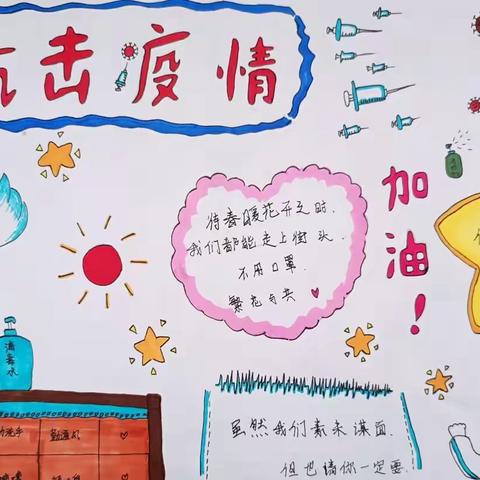 抗击疫情
加油！
待春暖花开之时.
我们都能走上街头.
不用口罩.
繁花与共
消毒水
勤洗手
勤通风
虽然我们素未谋面.
但也请你一定要.